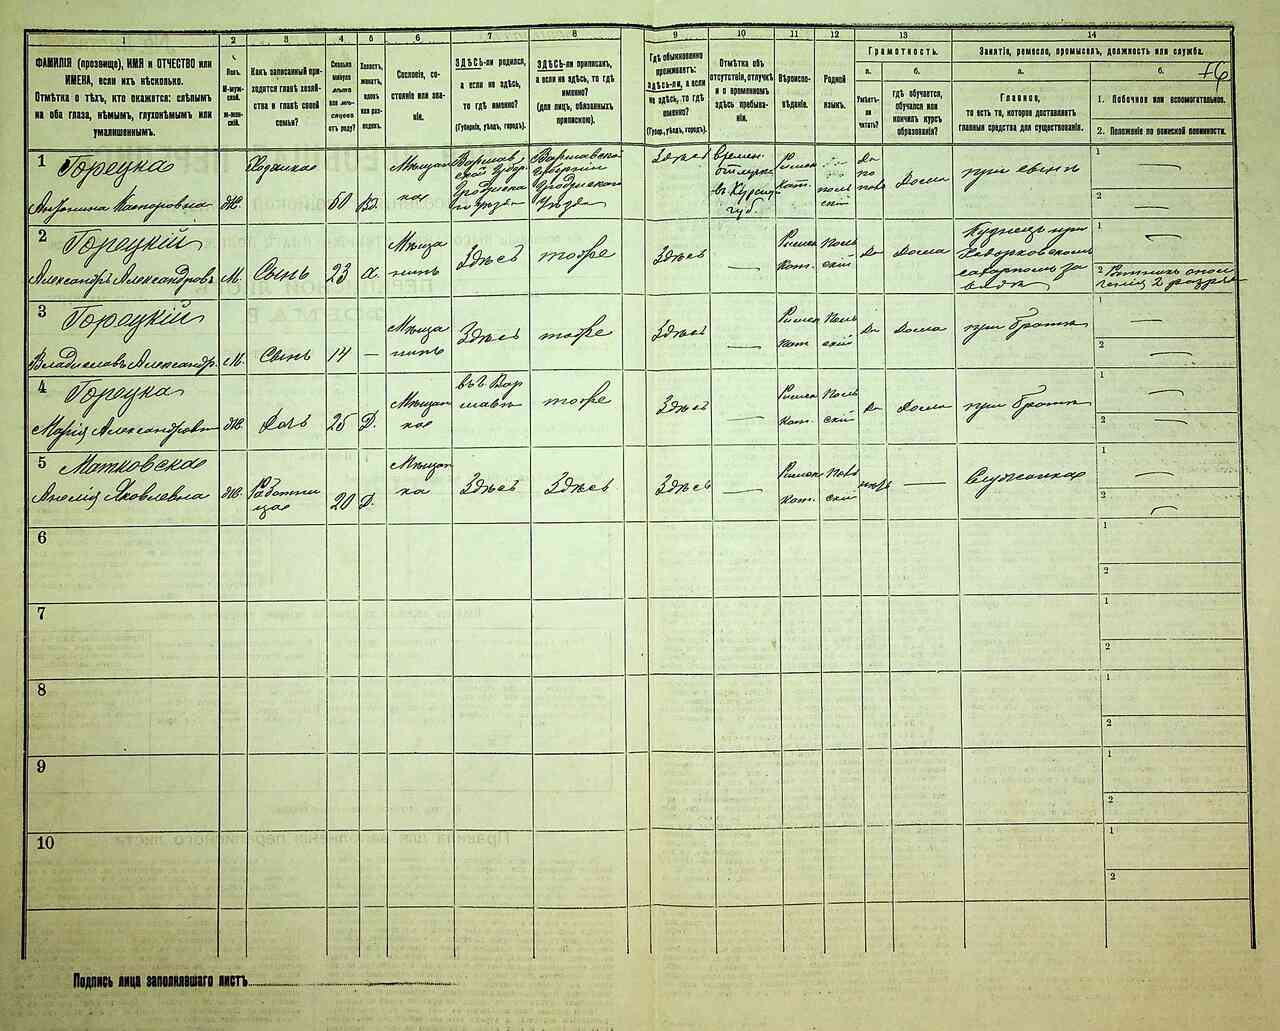 1
2
3
4
5
6
7
8
9
10
11
12
13
14
ФАМИЛІЯ (прозвище), ИМЯ и ОТЧЕСТВО или
ИМЕНА, если ихъ нѣсколько.
Отмѣтка о тѣхъ, кто окажется: слѣпымъ
на оба глаза, нѣмымъ, глухонѣмымъ или
умалишеннымъ.
Полъ.
М-муж-
ской.
Ж-жен-
скій.
Какъ записанный при-
ходится главѣ хозяй-
ства и главѣ своей
семьи?
Сколько
минуло
лѣтъ
или мѣ-
сяцевъ
отъ роду?
Холостъ,
женатъ,
вдовъ
или раз-
веденъ.
Сословіе, со-
стояніе или зва-
ніе.
ЗДѢСЬ-ли родился,
а если не здѣсь,
то гдѣ именно?
(Губернія, уѣздъ, городъ).
ЗДѢСЬ-ли приписанъ,
а если не здѣсь, то гдѣ
именно?
(для лицъ, обязанныхъ
припискою).
Гдѣ обыкновенно
проживаетъ:
здѣсь-ли, а если
не здѣсь, то гдѣ
именно?
(Губер., уѣздъ, городъ).
Отмѣтка объ
отсутствіи, отлучкѣ
и о временномъ
здѣсь пребыва-
ніи.
Вѣроиспо-
вѣданіе.
Родной
языкъ.
Грамотность.
а.
Умѣетъ-
ли
читать?
б.
гдѣ обучается,
обучался или
кончилъ курсъ
образованія?
Занятія, ремесло, промыселъ, должность или служба.
а.
Главное,
то есть то, которое доставляетъ
главныя средства для существованія.
б.
1. Побочное или вспомогательное.
2. Положеніе по воинской повинности.
1
Горецка
Антонина Касторовна
Ж.
Хозяйка
50
Вд.
Мѣщан
ка
Варшав
ской Губер.
Гродиска
го Уѣзда
Варшавской
Губерніи
Гродискаго
Уѣзда
Здѣсь
Времен.
отлучка
въ Курской
губ.
Римск
Кат.
поль
скій
Да
по
Дома
при сынѣ
1
2
2
Горецкій
Александръ Александровъ
М.
Сынъ
23
Х.
Мѣща
нинъ
Здѣсь
тоже
Здѣсь
—
Римск
Кат.
Поль
скій
Да
Дома
Кузнецъ при
сахарномъ за
водѣ
1
2 Ратникъ опол
ченія 2 разряда
3
Горецкій
Владиславъ Александр.
М.
Сынъ
14
—
Мѣща
нинъ
Здѣсь
тоже
Здѣсь
—
Римск
Кат
Поль
скій
Да
Дома
при братѣ
1
2
4
Горецка
Марія Александровн
Ж.
Дочь
25
Д.
Мѣщан
ка
въ г Вар
шавѣ
тоже
Здѣсь
—
Римск
Кат.
Поль
скій
Да
Дома
при братѣ
1
2
5
Матковска
Анеля Яковлевна
Ж.
Работни
ца
20
Д.
Мѣщан
ка
Здѣсь
Здѣсь
Здѣсь
—
Римск
Кат.
Поль
скій
нѣтъ
—
Служанка
1
2
6
1
2
7
1
2
8
1
2
9
1
2
10
1
2
Подпись лица заполнявшаго листъ